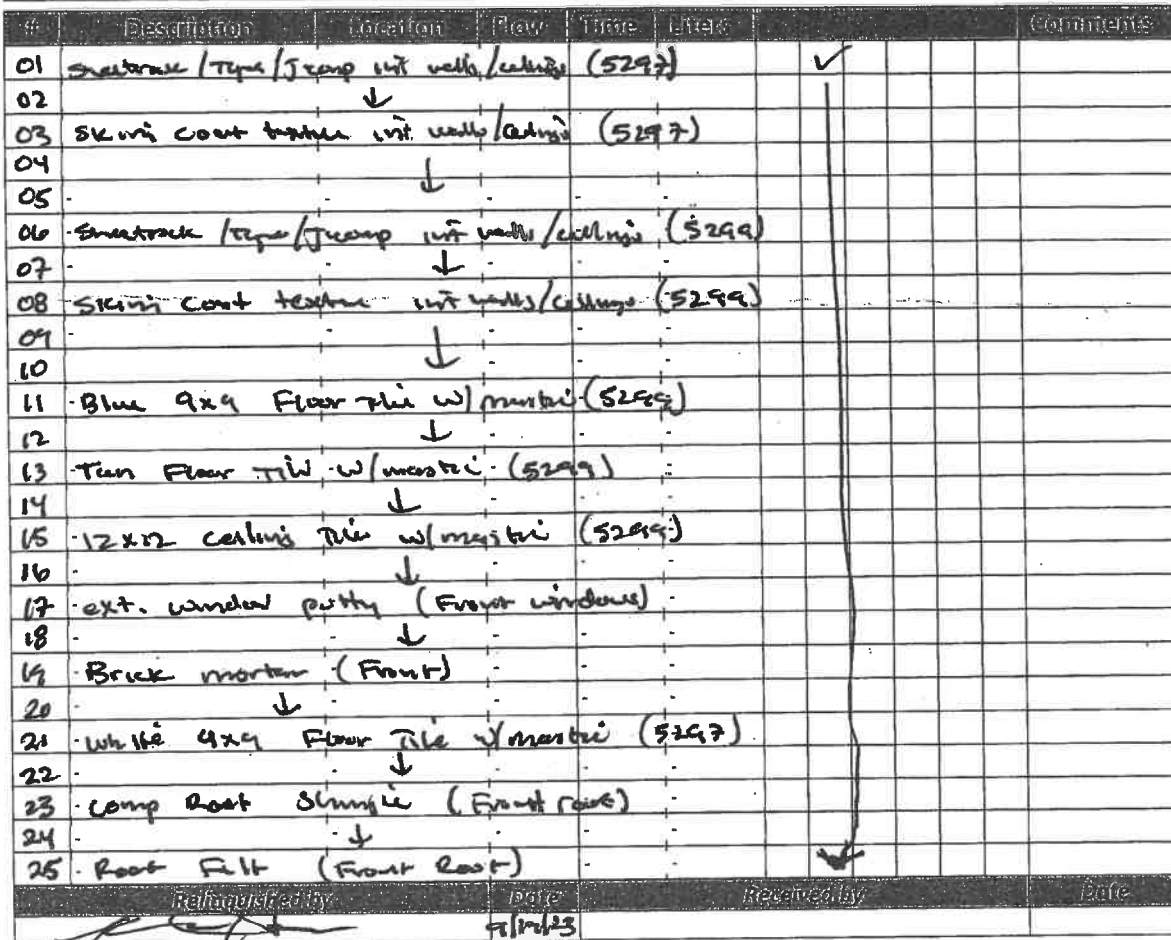 # Description Location Flow Time Liters Comments
01 Sheetrock /Tape/Jcomp int walls/ceilings (5297) ✓
02 ↓
03 Skim coat texture int. walls/ceilings (5297)
04 ↓
05
06 Sheetrock /Tape/Jcomp int walls/ceilings (5299)
07 ↓
08 Skim coat texture int walls/ceilings (5299)
09 ↓
10
11 Blue 9x9 Floor Tile w/ mastic (5299)
12 ↓
13 Tan Floor Tile w/mastic (5299)
14 ↓
15 12x12 ceiling Tile w/ mastic (5299)
16 ↓
17 ext. window putty (Front windows)
18 ↓
19 Brick mortar (Front)
20 ↓
21 White 9x9 Floor Tile w/ mastic (5297)
22 ↓
23 comp Roof Shingle (Front roof)
24 ↓
25 Roof Felt (Front Roof)
Relinquished by Date Received by Date